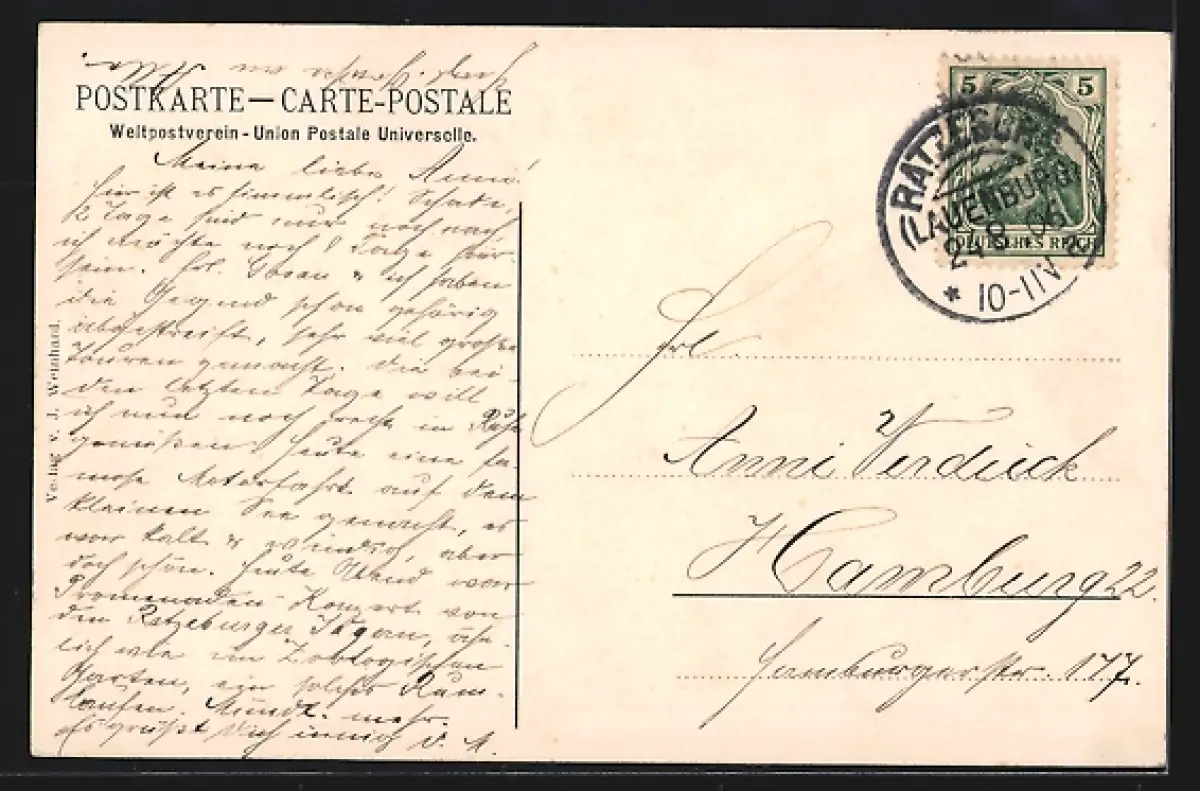 POSTKARTE — CARTE-POSTALE
Weltpostverein - Union Postale Universelle.
Meine liebe Anni!
hier ist es himmlisch! Schade,
2 Tage sind nur noch nach
ich möchte noch 8 Tage hier
sein. Frl. & ich haben
die Gegend schon gehörig
abgestreift, sehr viel große
Touren gemacht. Die bei-
den letzten Tage will
ich nun noch recht in Ruhe
genießen. Heute eine fa-
mose Motorfahrt auf dem
kleinen See gemacht, es
war kalt & windig, aber
doch schön. Heute Abend war
Promenaden-Konzert von
den Ratzeburger Jägern, ähn-
lich wie im Zoologischen
Garten, ein solches Rum-
laufen. Mündl. mehr.
Es grüßt Dich innig D. A.
Verlag v. J. Weinhard.
5 5
DEUTSCHES REICH
RATZEBURG
(LAUENBURG)
24 8 06
* 10-11 V
Frl.
Anni Verdieck
Hamburg 22.
Hamburgerstr. 177.